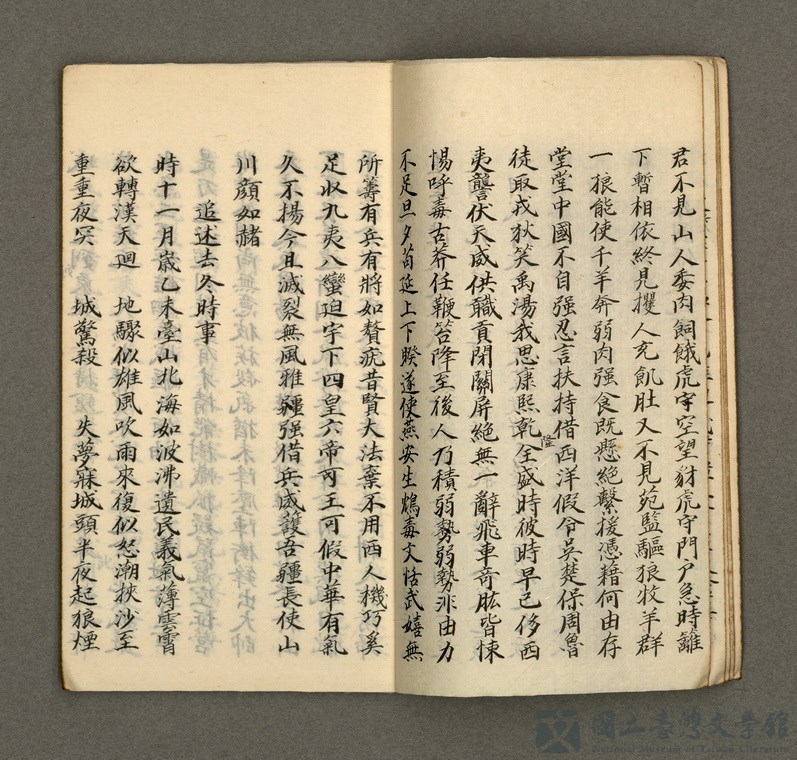 君不見山人委肉飼餓虎字空望豺虎守門戶急時籬
下暫相依終見攫人充飢肚又不見苑監驅狼牧羊群
一狼能使千羊奔弱肉强食既懸絕繫援憑藉何由存
堂堂中國不自强忍言扶持借西洋假令吳楚保周魯
徒取戎狄笑禹湯我思康熙乾隆全盛時彼時早已侈西
夷讋伏天威供職貢閉關屏絕無一辭飛車奇肱皆悚
惕呼毒古莽任鞭笞降至後人乃積弱勢弱勢非由力
不足旦夕苟延上下睽遂使燕安生鴆毒文恬武嬉無
所籌有兵有將如贅疣昔賢大法棄不用西人機巧奚
足收九夷八蠻迫宇下四皇六帝可王可假中華有氣
久不揚今且滅裂無風雅疆强借兵威護吾疆長使山
川顏如赭
追述去冬時事
時十一月歲乙未臺山北海如波沸遺民義氣薄雲霄
欲轉漢天迴 地驟似雄風吹雨來復似怒潮挾沙至
重重夜冥 城驚殺 失夢寐城頭半夜起狼煙
國立臺灣文學館
National Museum of Taiwan Literature